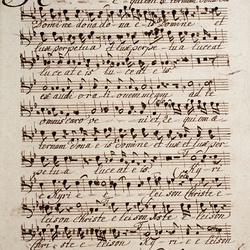 e quiem æ ternam dona eis
Domine dona do na e is Domine et
lux perpetua et lux perpe tua luceat
luceat e is luceat e is.
exaudi ora ti onem meam ad te
omnis caro ve ni et, Re quiem æ
ternam dona e is Domine et lux et lux perpe
petua luceat e is. Kyri
e lei son Christe e
leison Christe e leison Christe e leison
Chri ste e leison Kyri e e leison